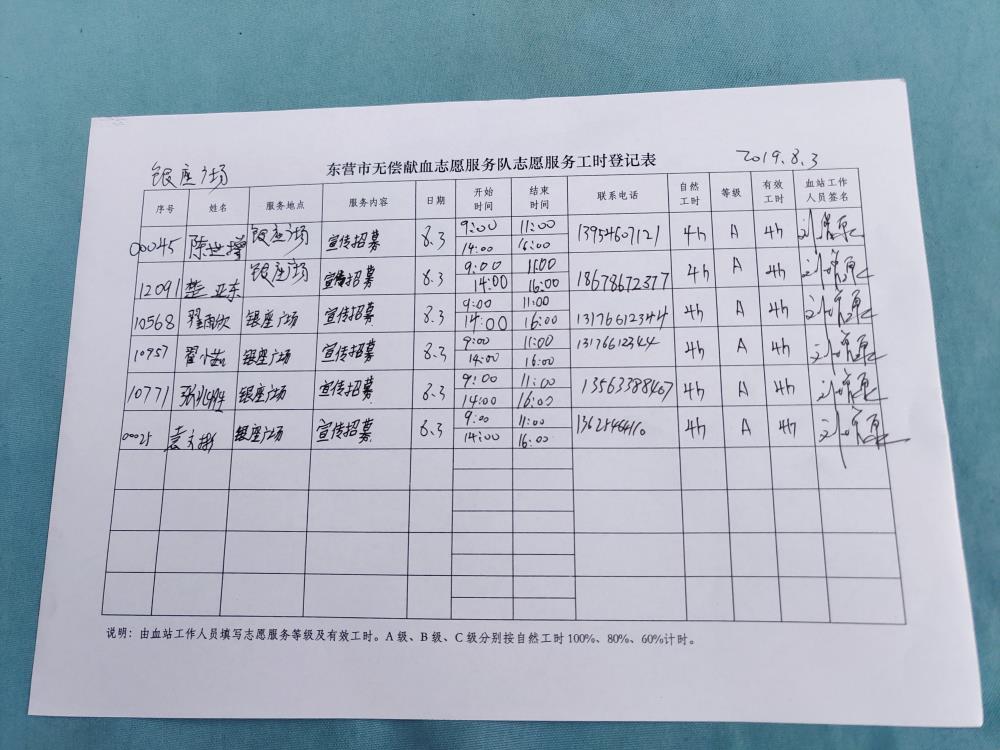 银座广场 东营市无偿献血志愿服务队志愿服务工时登记表 2019.8.3
序号 姓名 服务地点 服务内容 日期 开始时间 结束时间 联系电话 自然工时 等级 有效工时 血站工作人员签名
00045 陈 银座广场 宣传招募 8.3 9:00 11:00 13954607121 4h A 4h
14:00 16:00
12091 楚亚东 银座广场 宣传招募 8.3 9:00 11:00 18678672377 4h A 4h
14:00 16:00
10568 翟雨欣 银座广场 宣传招募 8.3 9:00 11:00 13176612344 4h A 4h
14:00 16:00
10957 翟小茹 银座广场 宣传招募 8.3 9:00 11:00 13176612344 4h A 4h
14:00 16:00
10771 张兆胜 银座广场 宣传招募 8.3 9:00 11:00 13563388467 4h A 4h
14:00 16:00
00025 袁 银座广场 宣传招募 8.3 9:00 11:00 4h A 4h
14:00 16:00
说明：由血站工作人员填写志愿服务等级及有效工时。A 级、B 级、C 级分别按自然工时 100%、80%、60%计时。